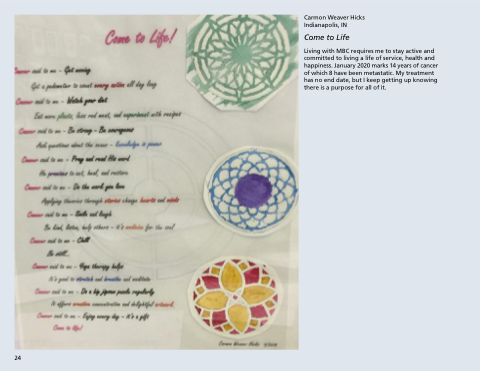 Come to Life!
Cancer said to me - Get moving
Get a pedometer to count every action all day long
Cancer said to me - Watch your diet
Eat more plants, less red meat, and experiment with recipes
Cancer said to me - Be strong - Be courageous
Ask questions about the issue - Knowledge is power
Cancer said to me - Pray and read His word
He promises to act, heal, and restore
Cancer said to me - Do the work you love
Applying theories through stories change hearts and minds
Cancer said to me - Smile and laugh
Be kind, listen, help others - it's medicine for the soul
Cancer said to me - Chill
Be still...
Cancer said to me - Yoga therapy helps
It's good to stretch and breathe and meditate
Cancer said to me - Do a big jigsaw puzzle regularly
It offers creative concentration and delightful artwork.
Cancer said to me - Enjoy every day - it's a gift
Come to life!
Carmon Weaver Hicks
Carmon Weaver Hicks
Indianapolis, IN
Come to Life
Living with MBC requires me to stay active and
committed to living a life of service, health and
happiness. January 2020 marks 14 years of cancer
of which 8 have been metastatic. My treatment
has no end date, but I keep getting up knowing
there is a purpose for all of it.
24